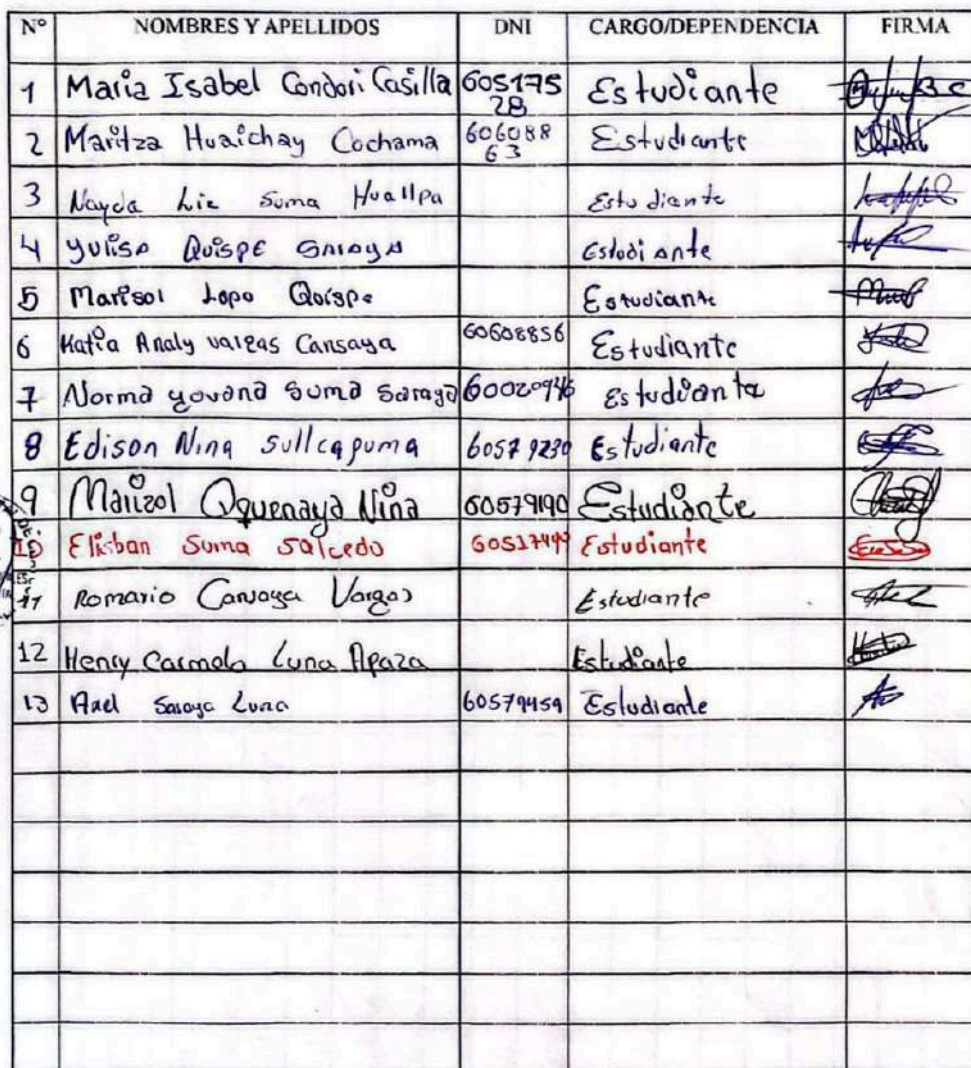 N° NOMBRES Y APELLIDOS DNI CARGO/DEPENDENCIA FIRMA
1 Maria Isabel Condori Casilla 60517528 Estudiante
2 Maritza Huaichay Cochama 60608863 Estudiante
3 Nayda Liz Suma Huallpa Estudiante
4 Yulisa Quispe Saraya Estudiante
5 Marisol Lopo Quispe Estudiante
6 Katia Analy Vargas Cansaya 60608856 Estudiante
7 Norma Yovana Suma Saraya 60020946 Estudianta
8 Edison Nina Sullcapuma 60579230 Estudiante
9 Marizol Oquenaya Nina 60579190 Estudiante
10 Elisban Suma Salcedo Estudiante
11 Romario Cansaya Vargas Estudiante
12 Henry Carmelo Luna Apaza Estudiante
13 Axel Saraya Luna 60579459 Estudiante